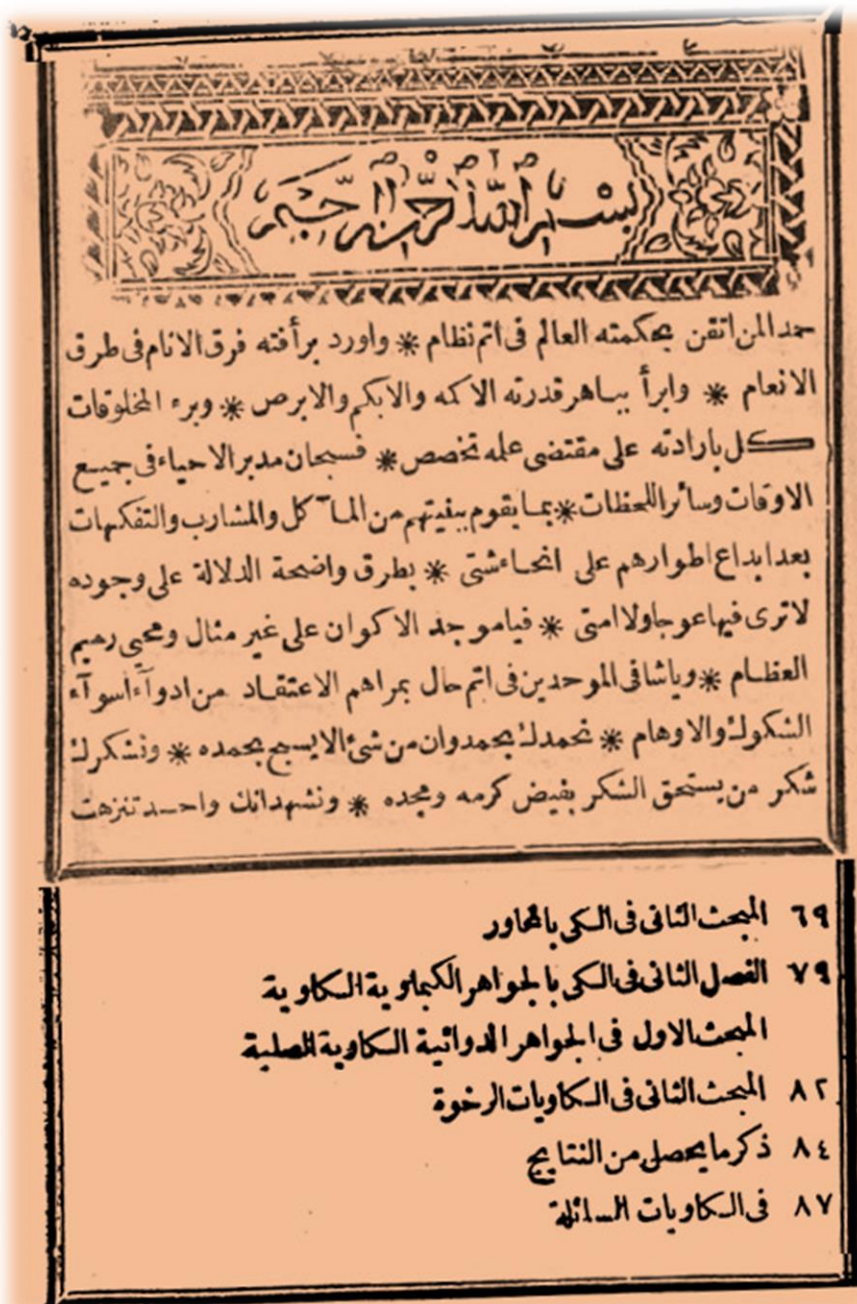 بسم الله الرحمن الرحيم
حمد المن اتقن بحكمته العالم فى اتم نظام * واورد برأفته فرق الانام فى طرق
الانعام * وابرأ بباهر قدرته الاكمه والابكم والابرص * وبرء المخلوقات
كل بارادته على مقتضى علمه تخصص * فسبحان مدبر الاحياء فى جميع
الاوقات وسائر اللحظات * بما يقوم ببغيتهم من المآكل والمشارب والتفكهات
بعد ابداع اطوارهم على انحاء شتى * بطرق واضحة الدلالة على وجوده
لا ترى فيها عوجا ولا امتى * فيا موجد الاكوان على غير مثال ومحيى رميم
العظام * ويا شافى الموحدين فى اتم حال بمراهم الاعتقاد من ادوآء اسوآء
الشكوك والاوهام * نحمدك بحمد وان من شئ الا يسبح بحمده * ونشكرك
شكر من يستحق الشكر بفيض كرمه ومجده * ونشهد انك واحد تنزهت
٦٩ المبحث الثانى فى الكى بالمحاور
٧٩ الفصل الثانى فى الكى بالجواهر الكيماوية الكاوية
المبحث الاول فى الجواهر الدوائية الكاوية الصلبة
٨٢ المبحث الثانى فى الكاويات الرخوة
٨٤ ذكر ما يحصل من النتايج
٨٧ فى الكاويات السائلة